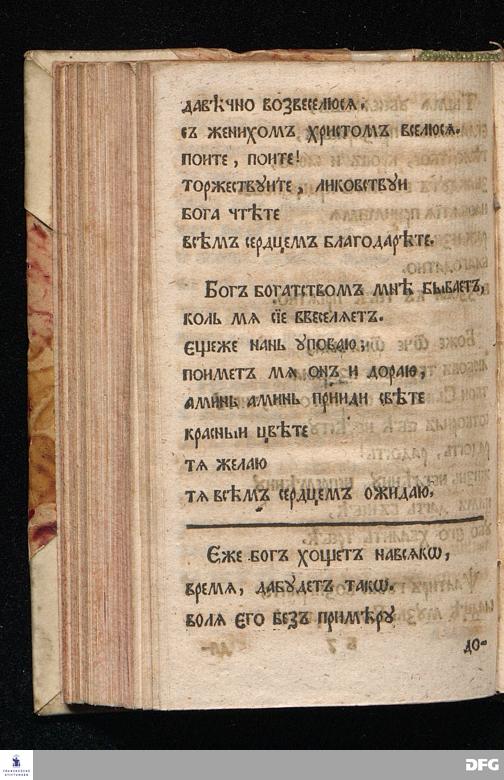 давѣчно возвеселюся.
съ женихомъ христомъ вселюся.
поите, поите!
торжествуите, ликовствуи
бога чтѣте
всѣмъ сердцемъ благодарѣте.
Богъ богатствомъ мнѣ бываетъ,
коль мя сїе ввеселяетъ.
єщеже нань уповаю;
поиметъ мя онъ и дораю,
аминь аминь прииди свѣте
красныи цвѣте
тя желаю
тя всѣмъ сердцемъ ожидаю.
Єже богъ хощетъ навсякѡ,
время, дабудетъ такѡ.
воля єго безъ примѣру
до-
FRANCKESCHE STIFTUNGEN
DFG